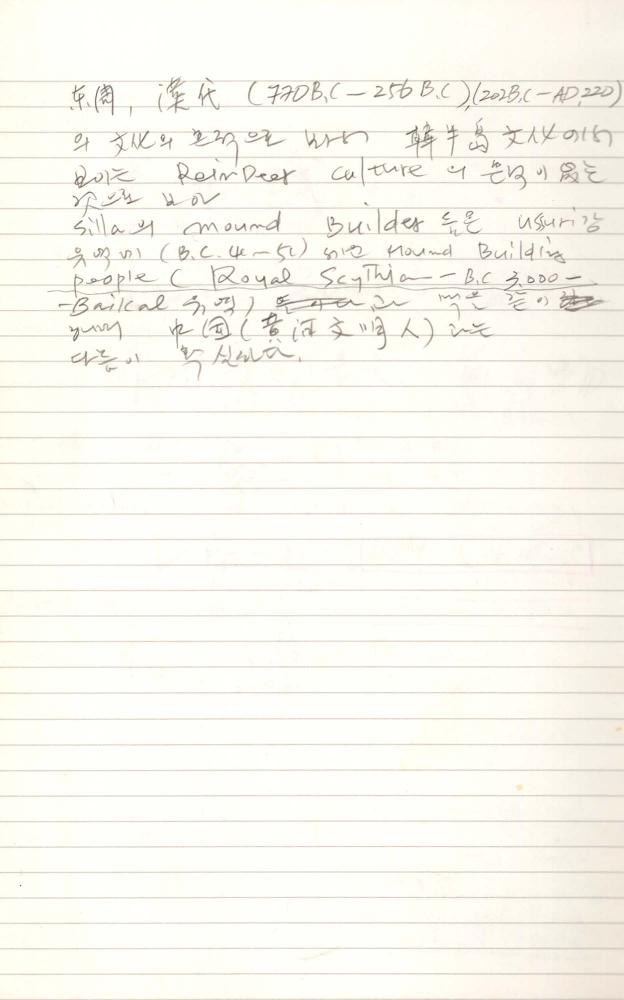 东周, 漢代 (770B.C - 256 B.C),(202B.C - AD,220)
의 文化의 흔적으로 보아 韓半島 文化에서
보이는 ReinDeer culture의 흔적이 없는
것으로 보아
Silla의 mound Builder들은 Usuri강
유역에 (B.C. 4c~5c) Mound Building
people ( Royal ScyThian - B.C 3,000 -
-Baikal 유역) 맥은 같이
하며 中国(黄河文明人)과는
다름이 확실하다.